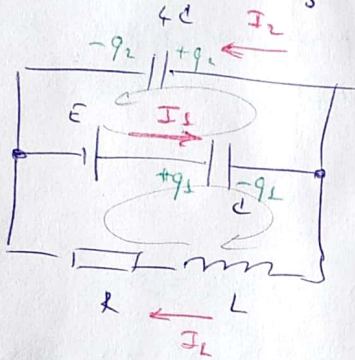 4C
I₂
-q₂ +q₂
E
I₁
+q₁ -q₁
C
R L
I_L